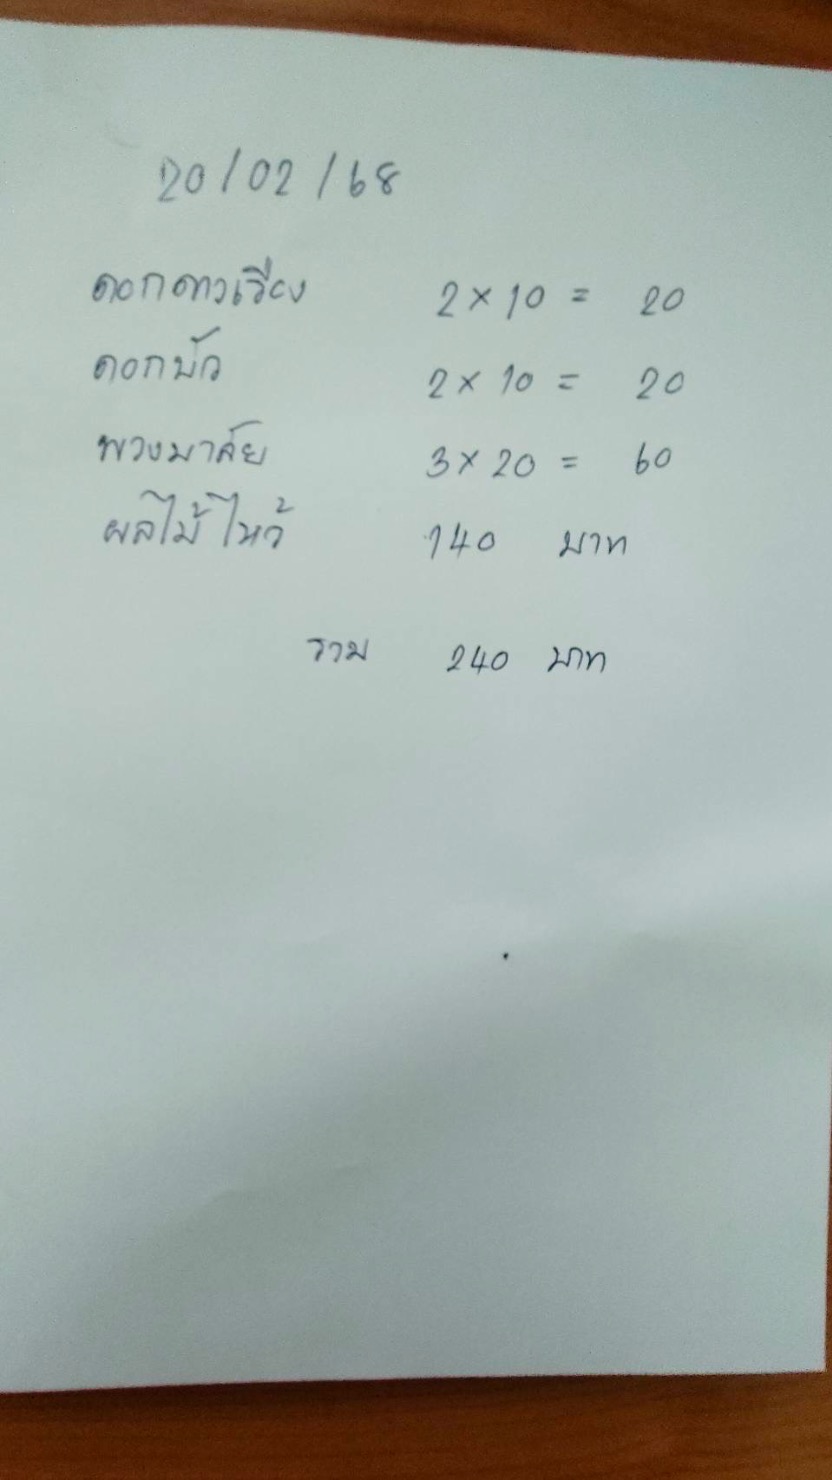 20/02/68
ดอกดาวเรือง 2 × 10 = 20
ดอกบัว 2 × 10 = 20
พวงมาลัย 3 × 20 = 60
ผลไม้ไหว้ 140 บาท
รวม 240 บาท